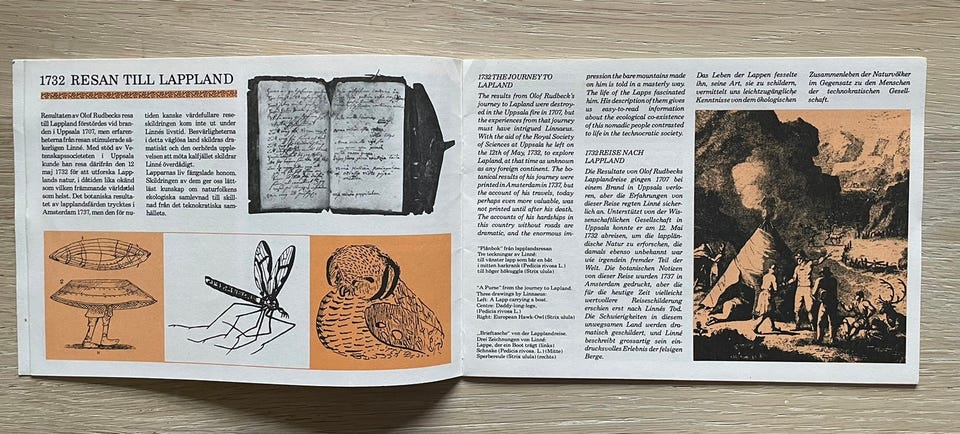 1732 RESAN TILL LAPPLAND
Resultaten av Olof Rudbecks resa
till Lappland förstördes vid bran-
den i Uppsala 1707, men erfaren-
heterna från resan stimulerade sä-
kerligen Linné. Med stöd av Ve-
tenskapssocieteten i Uppsala
kunde han resa därifrån den 12
maj 1732 för att utforska Lapp-
lands natur, i dåtiden lika okänd
som vilken främmande världsdel
som helst. Det botaniska resulta-
tet av lapplandsfärden trycktes i
Amsterdam 1737, men den för nu-
tiden kanske värdefullare rese-
skildringen kom inte ut under
Linnés livstid. Besvärligheterna
i detta väglösa land skildras dra-
matiskt och den oerhörda upple-
velsen att möta kalfjället skildrar
Linné överdådigt.
Lapparnas liv fängslade honom.
Skildringen av dem ger oss lätt-
läst kunskap om naturfolkens
ekologiska samlevnad till skill-
nad från det teknokratiska sam-
hällets.
1732 THE JOURNEY TO
LAPLAND
The results from Olof Rudbeck's
journey to Lapland were destroy-
ed in the Uppsala fire in 1707, but
the experiences from that journey
must have intrigued Linnaeus.
With the aid of the Royal Society
of Sciences at Uppsala he left on
the 12th of May, 1732, to explore
Lapland, at that time as unknown
as any foreign continent. The bo-
tanical results of his journey were
printed in Amsterdam in 1737, but
the account of his travels, today
perhaps even more valuable, was
not printed until after his death.
The accounts of his hardships in
this country without roads are
dramatic, and the enormous im-
pression the bare mountains made
on him is told in a masterly way.
The life of the Lapps fascinated
him. His description of them gives
us easy-to-read information
about the ecological co-existence
of this nomadic people contrasted
to life in the technocratic society.
"Plånbok" från lapplandsresan
Tre teckningar av Linné:
till vänster lapp som bär en båt
i mitten harkrank (Pedicia rivosa L.)
till höger hökuggla (Strix ulula)
"A Purse" from the journey to Lapland.
Three drawings by Linnaeus.
Left: A Lapp carrying a boat.
Centre: Daddy-long-legs,
(Pedicia rivosa L.)
Right: European Hawk-Owl (Strix ulula)
„Brieftasche" von der Lapplandreise.
Drei Zeichnungen von Linné:
Lappe, der ein Boot trägt (links)
Schnake (Pedicia rivosa. L.) (Mitte)
Sperbereule (Strix ulula) (rechts)
1732 REISE NACH
LAPPLAND
Die Resultate von Olof Rudbecks
Lapplandreise gingen 1707 bei
einem Brand in Uppsala verlo-
ren, aber die Erfahrungen von
dieser Reise regten Linné sicher-
lich an. Unterstützt von der Wis-
senschaftlichen Gesellschaft in
Uppsala konnte er am 12. Mai
1732 abreisen, um die lapplän-
dische Natur zu erforschen, die
damals ebenso unbekannt war
wie irgendein fremder Teil der
Welt. Die botanischen Notizen
von dieser Reise wurden 1737 in
Amsterdam gedruckt, aber die
für die heutige Zeit vielleicht
wertvollere Reiseschilderung
erschien erst nach Linnés Tod.
Die Schwierigkeiten in diesem
unwegsamen Land werden dra-
matisch geschildert, und Linné
beschreibt grossartig sein ein-
drucksvolles Erlebnis der felsigen
Berge.
Das Leben der Lappen fesselte
ihn, seine Art, sie zu schildern,
vermittelt uns leichtzugängliche
Kenntnisse von dem ökologischen
Zusammenleben der Naturvölker
im Gegensatz zu den Menschen
der technokratischen Gesell-
schaft.